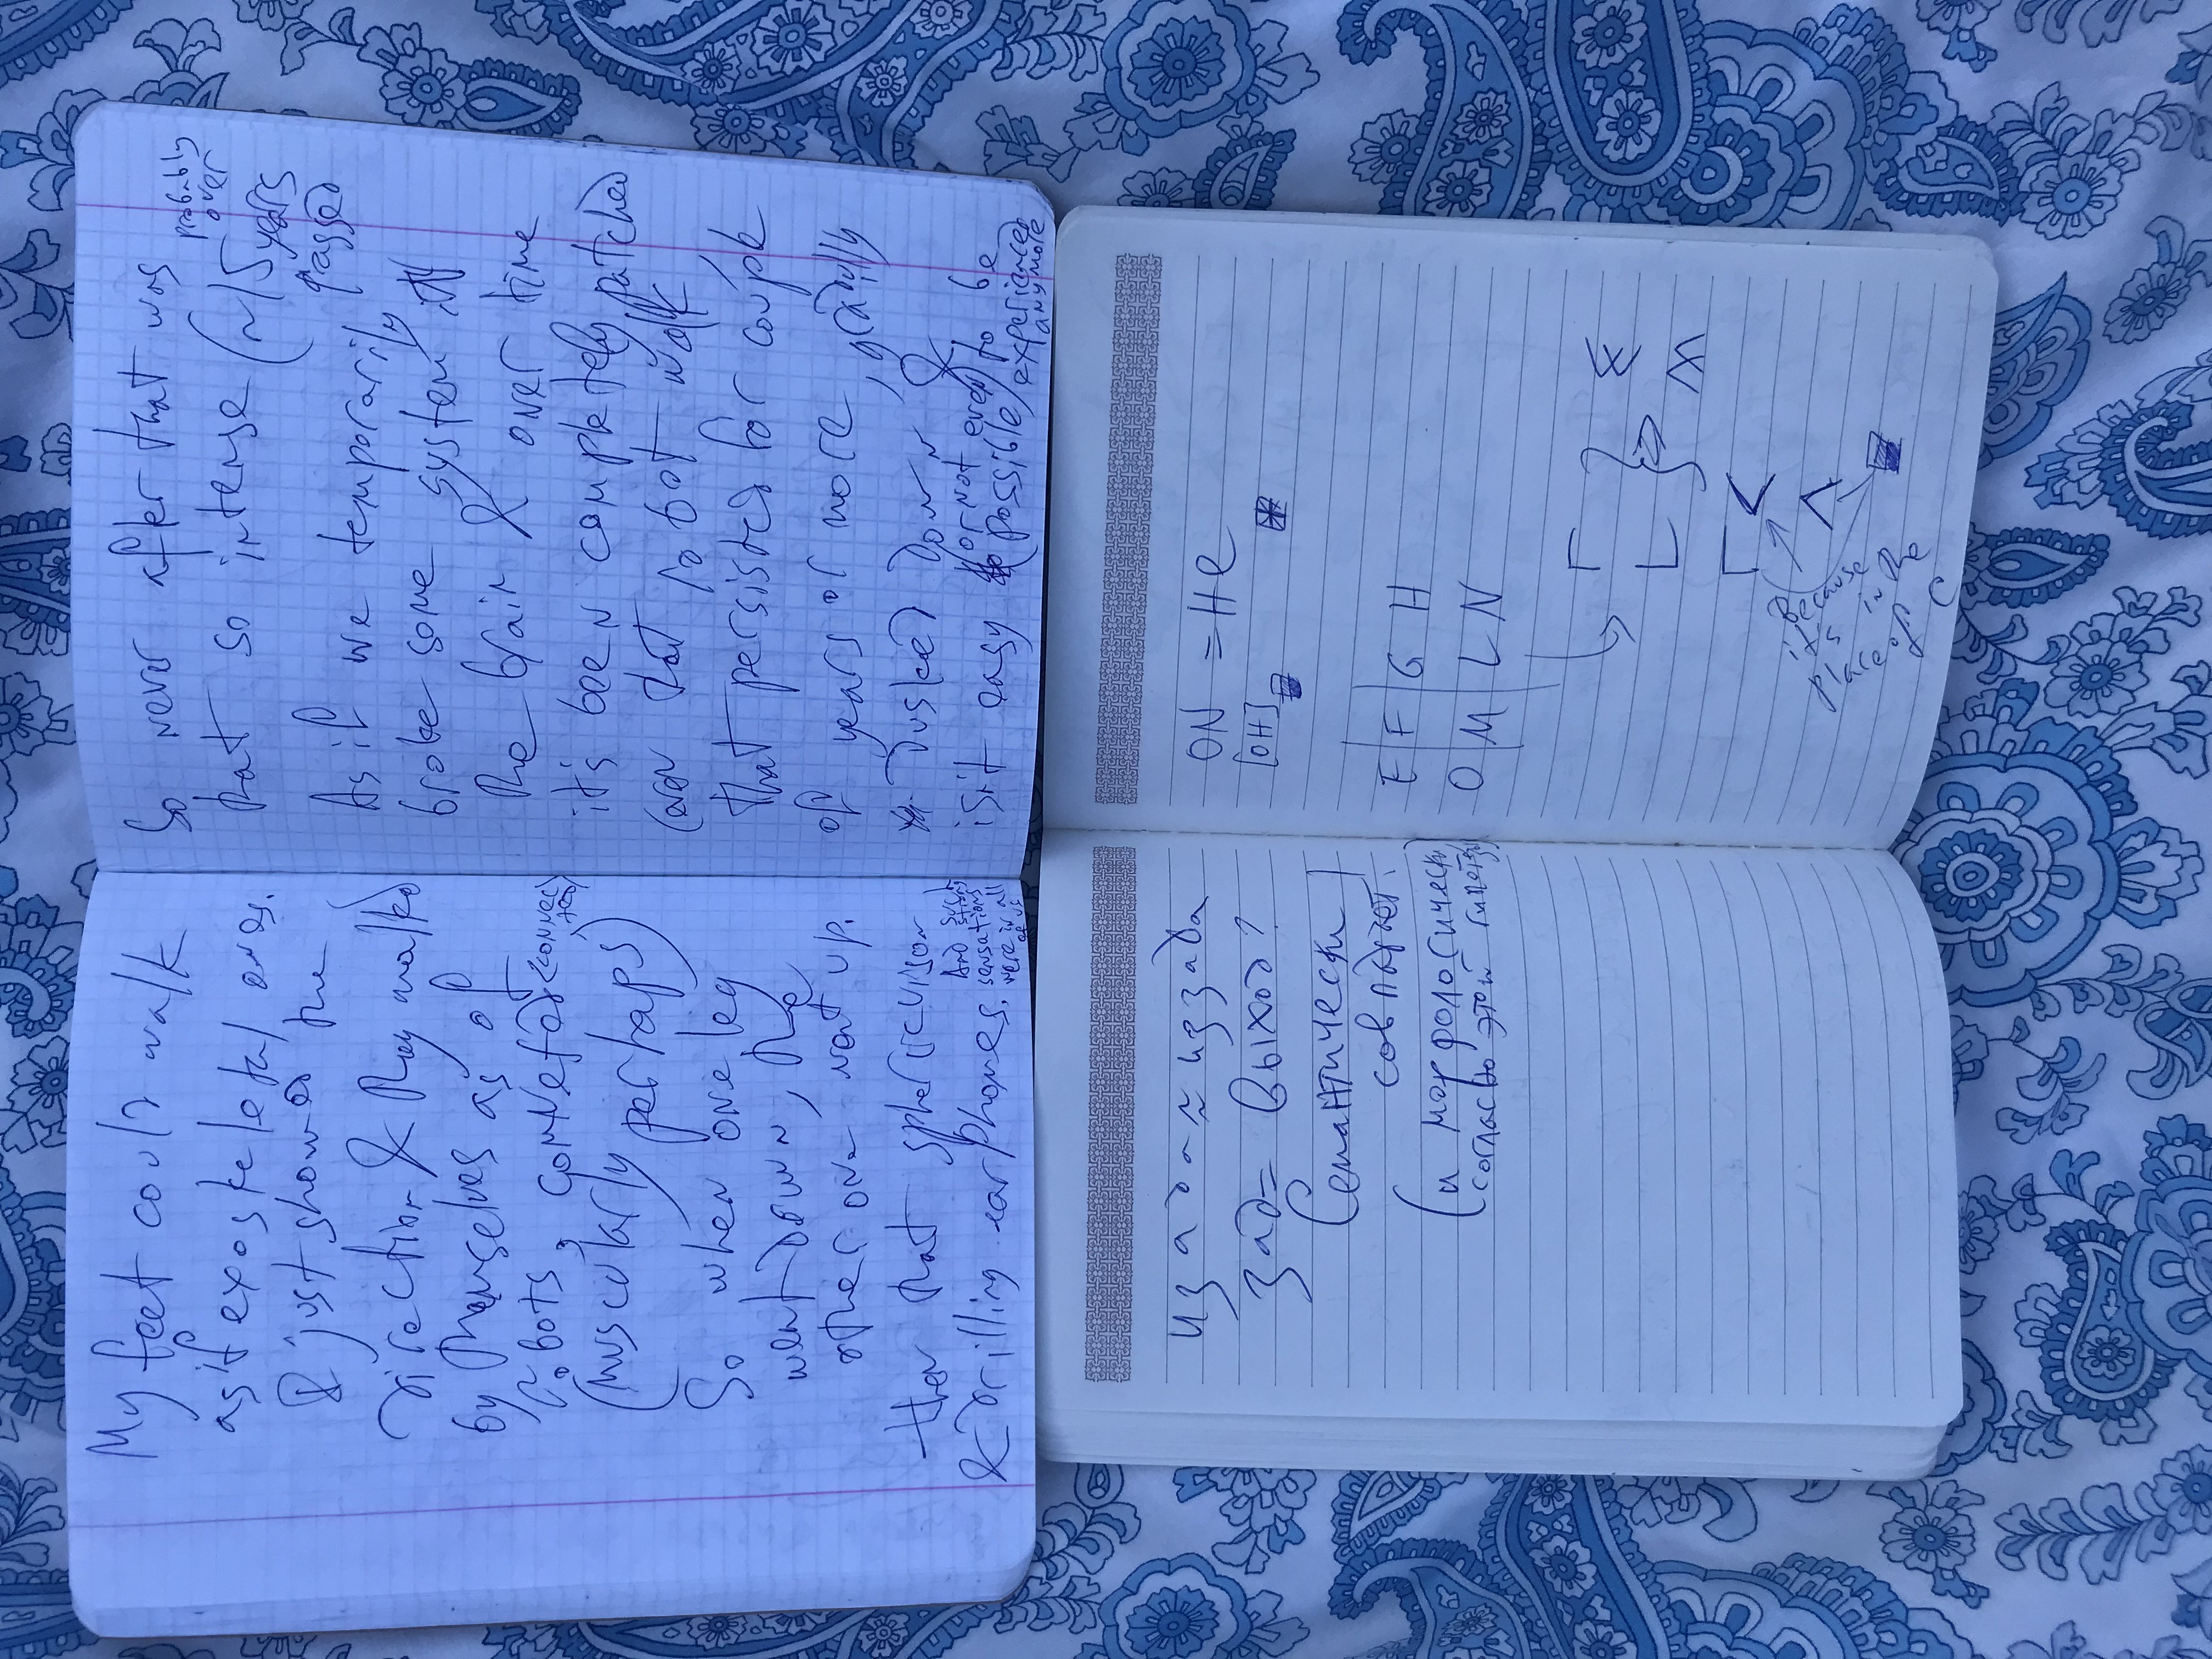 My feet could walk
as if exoskeletal ones.
I just showed the
direction & they walked
by themselves as of
robots, connefed <connec
ted>
(muscularly perhaps)
So when one leg
went down, the
other one went up.
then that spheric vision
& drilling earphones. And such
strong
sensations
were in all
of us
So never after that was
that so intense (~15 years
probably
over
passed
As if we temporarily
broke some system in
the brain & over time
it's been completely patched
(even that robot walk,
that persisted for couple
of years or more, gradully
dusked down &
isn't easy (or not even
possible) to be
experienced
anymore
из ада ≈ из зада
зад = выход?
Семантически
совпадает.
(и морфологически,
согласно этой гипотезы)
ON = He
[OH]
E F G H
O M L N
Г
L
Г <
Λ
Because
it's in the
place of
C